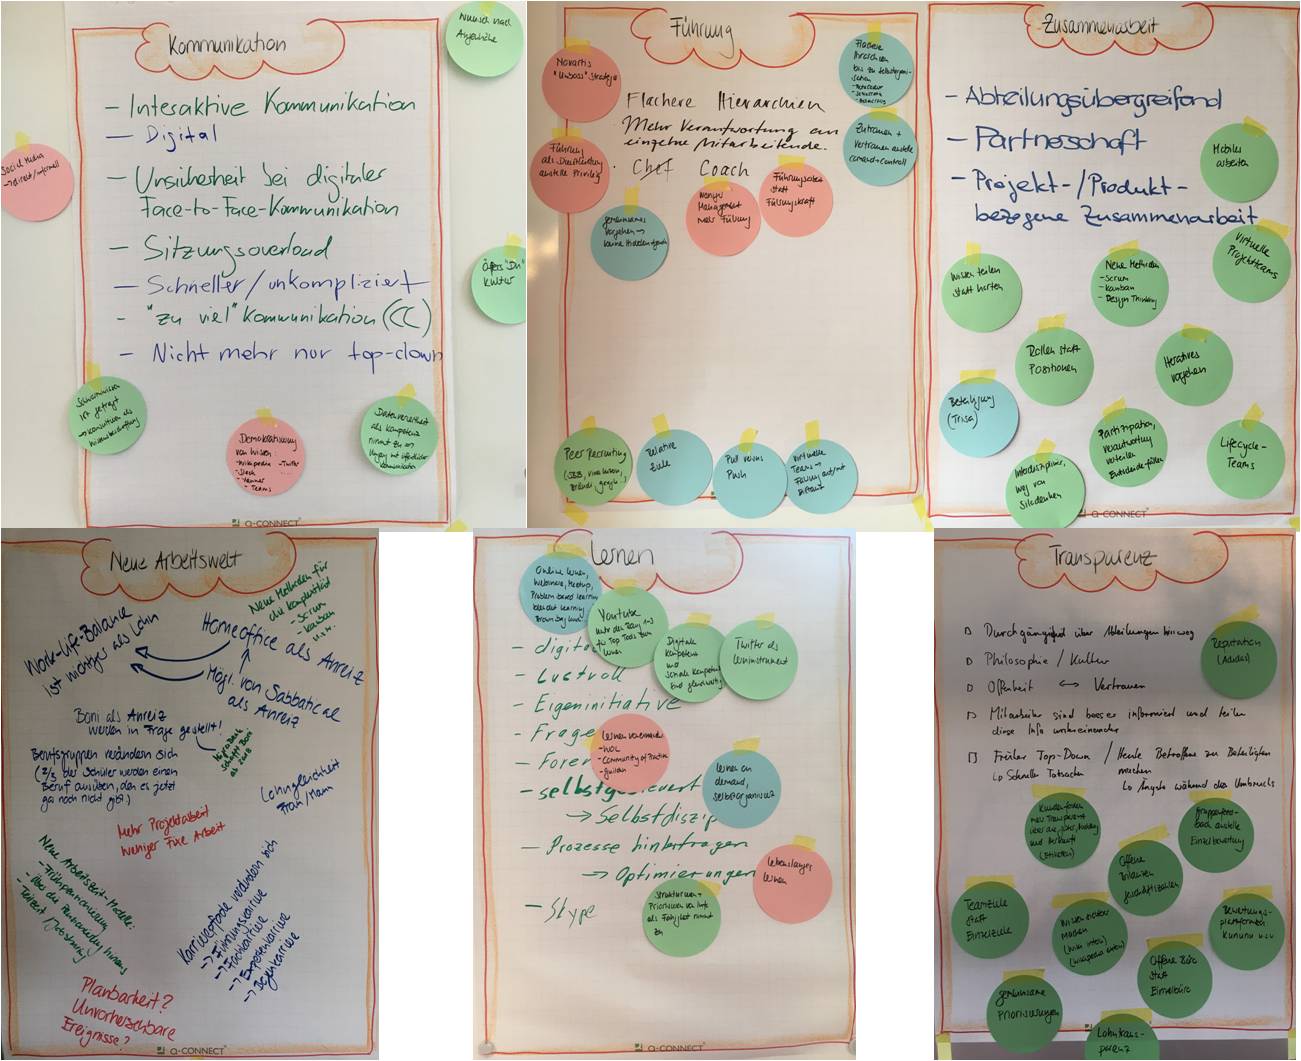 Kommunikation
Wunsch nach
Augenhöhe
- Interaktive Kommunikation
- Digital
Social Media
→ direkt/informell
- Unsicherheit bei digitaler
Face-to-Face-Kommunikation
- Sitzungsoverload
Öfters "Du"
Kultur
- Schneller/unkompliziert
- "zu viel" Kommunikation (CC)
- Nicht mehr nur top-down
Schwarmwissen
ist gefragt
→ Konsultieren als
Demokratisierung
von Wissen:
- Wikipedia - Twitter
- Slack
- Yammer
- Teams
als Kompetenz
nimmt zu
Kommunikation
Q-CONNECT
Führung
Novartis
"Unboss" Strategie
Flachere
Hierarchien
bis zu Selbstorgani-
sation
Flachere Hierarchien
Mehr Verantwortung an
einzelne Mitarbeitende.
Chef Coach
Zutrauen +
Vertrauen anstelle
command + control
Führung
als Dienstleistung
anstelle Privileg
Weniger
Management
mehr Führung
Führungsarbeit
statt
Führungskraft
gemeinsames
Vorgehen →
keine Hidden Agenda
Peer Recruiting
Relative
Ziele
Pull versus
Push
Virtuelle
Teams →
Führung auf/mit
Distanz
Zusammenarbeit
- Abteilungsübergreifend
- Partnerschaft
- Projekt-/Produkt-
bezogene Zusammenarbeit
Mobiles
arbeiten
Virtuelle
Projektteams
Wissen teilen
statt horten
Neue Methoden
- Scrum
- Kanban
- Design Thinking
Rollen statt
Positionen
Iteratives
vorgehen
Beteiligung
(Trisa)
Partizipation,
Verantwortung
verteilen
Entscheide fällen
Lifecycle-
Teams
Interdisziplinär,
weg von
Silodenken
Q-CONNECT
Neue Arbeitswelt
Neue Methoden für
die Komplexität
- Scrum
- Kanban
u.s.w.
Work-Life-Balance
ist wichtiger als Lohn
Homeoffice als Anreiz
Mögl. von Sabbatical
als Anreiz
Boni als Anreiz
werden in Frage gestellt!
schafft Boni
ab
Berufsgruppen verändern sich
(2/3 der Schüler werden einen
Beruf ausüben, den es jetzt
gar noch nicht gibt.)
Lohngleichheit
Frau/Mann
Mehr Projektarbeit
Weniger Fixe Arbeit
Neue Arbeitszeit-Modelle:
- Frühpensionierung
- Über das Pensionsalter hinaus
- Teilzeit / Jobsharing
Karrierepfade verändern sich
→ Führungskarriere
→ Fachkarriere
→ Expertenkarriere
→ Bogenkarriere
Planbarkeit?
Unvorhersehbare
Ereignisse?
Q-CONNECT
Lernen
Online lernen,
Webinare, Meetup,
Problem based learning
blended learning
Youtube
Top Tools zum
lernen
Digitale
Kompetenz
und
soziale Kompetenz
sind gleichwertig
Twitter als
Lerninstrument
- digita
- Lustvoll
- Eigeninitiative
- Frage
- Foren
- selbstgesteuert
→ Selbstdiszip
Lernen voneinander
- WOL
- Community of Practice
- Gilden
Lernen on
demand,
selbstorganisiert
- Prozesse hinterfragen
→ Optimierungen
lebenslanges
lernen
- Skype
Strukturieren +
Priorisieren von Info
als Fähigkeit nimmt
zu
Q-CONNECT
Transparenz
Durchgängig über Abteilungen hinweg
Philosophie / Kultur
Offenheit ↔ Vertrauen
Mitarbeiter sind besser informiert und teilen
diese Info untereinander
Früher Top-Down / Heute Betroffene zu Beteiligten
machen
↳ Schneller Tatsachen
↳ Ängste während des Umbruchs
Reputation
(Adidas)
Kunden fordern
mehr Transparenz
und Herkunft
(Etiketten)
Gruppenfeed-
back anstelle
Einzelbewertung
Offene
Bilanzen
Geschäftszahlen
Teamziele
statt
Einzelziele
Wissen sichtbar
machen
(Wiki intern)
(Wikipedia extern)
Bewertungs-
plattformen
Kununu usw
Offene Büro
statt
Einzelbüro
gemeinsame
Priorisierungen
Lohntrans-
parenz
Q-CONNECT